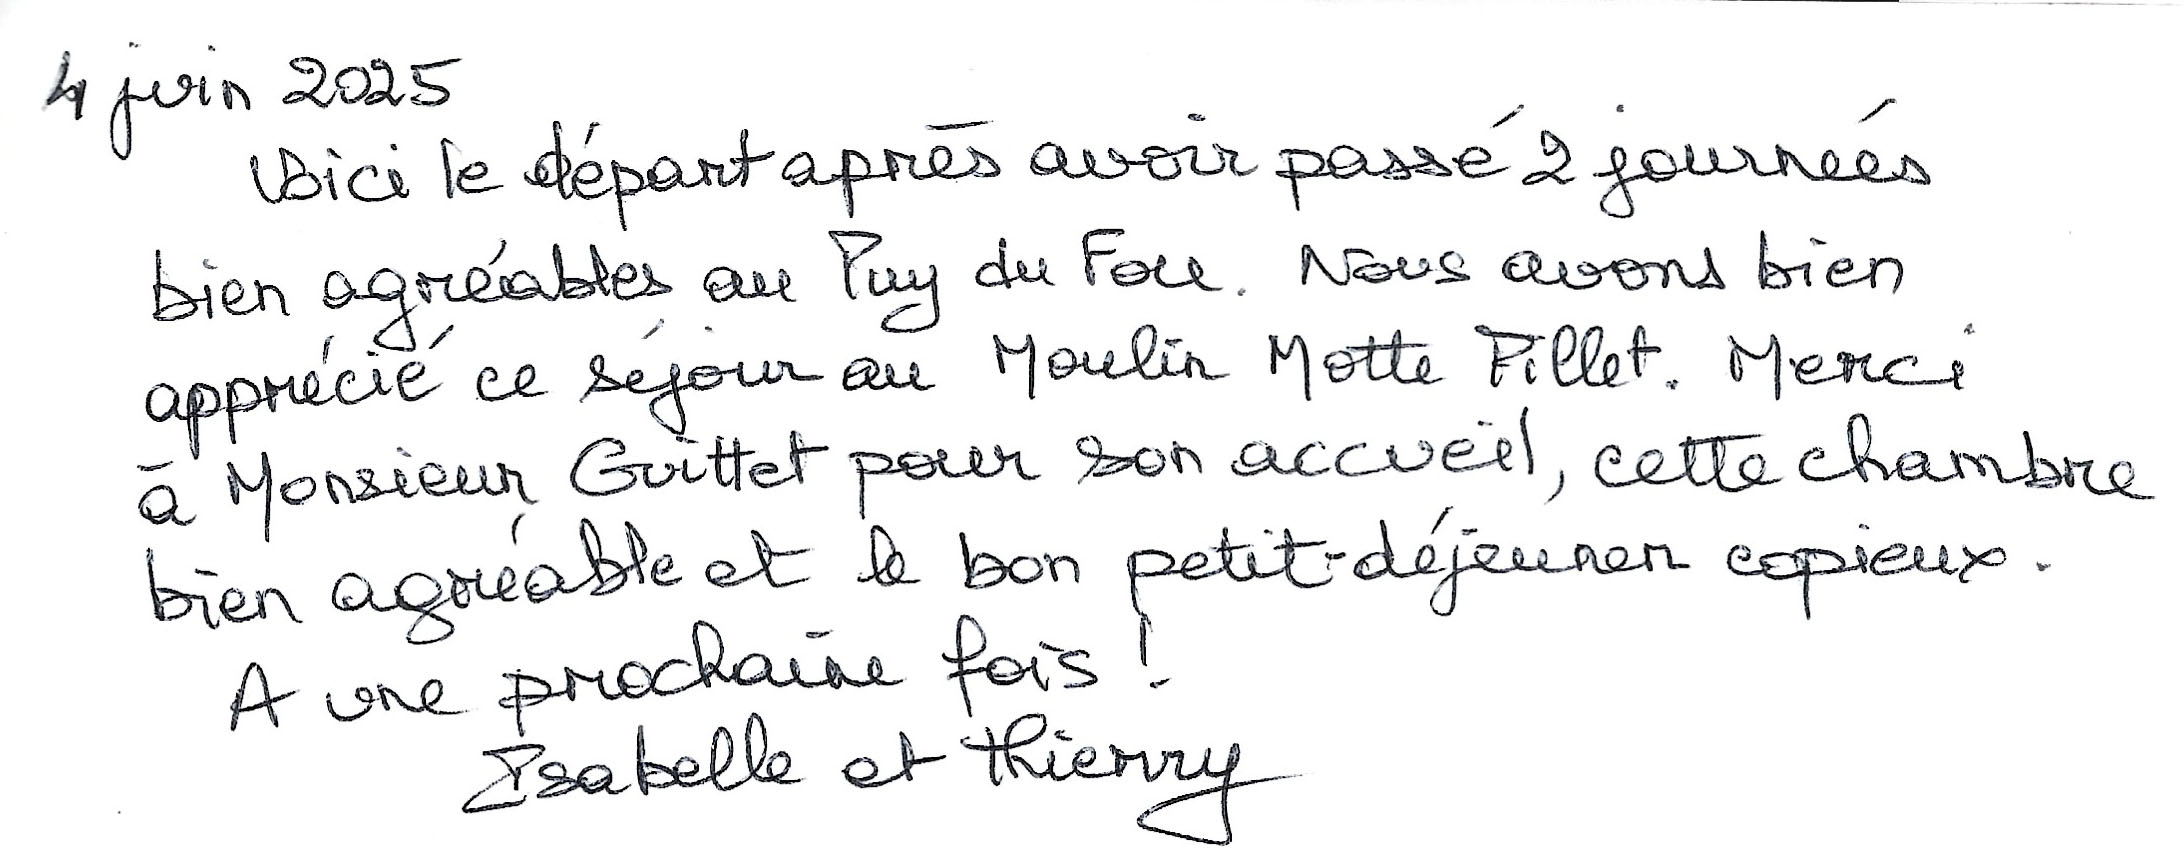 4 juin 2025
Voici le départ après avoir passé 2 journées
bien agréables au Puy du Fou. Nous avons bien
apprécié ce séjour au Moulin Motte Pillet. Merci
à Monsieur Guittet pour son accueil, cette chambre
bien agréable et le bon petit-déjeuner copieux.
A une prochaine fois !
Isabelle et Thierry